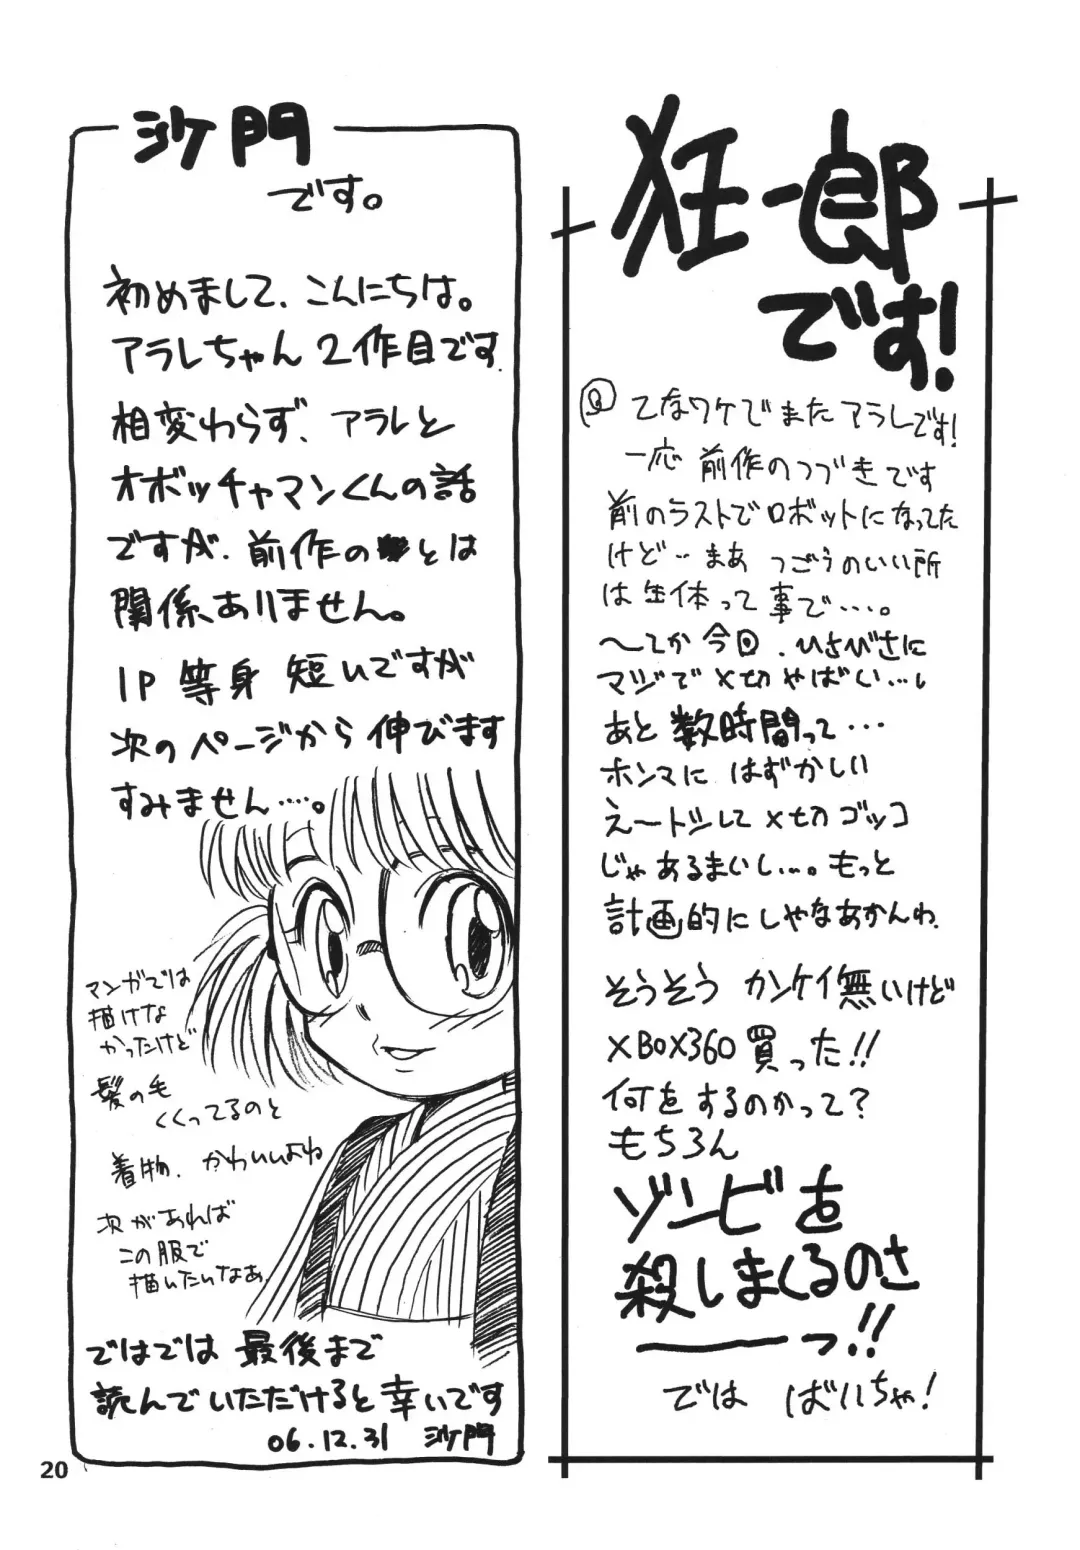 沙門
です。
初めまして、こんにちは。
アラレちゃん 2作目です
相変わらず、アラレと
オボッチャマンくんの話
ですが、前作のとは
関係ありません。
1P 等身 短いですが
次のページから伸びます
すみません‥‥。
マンガでは
描けな
かったけど
髪の毛
くくってるのと
着物、かわいいよね
次があれば
この服で
描いたいなあ
ではでは 最後まで
読んでいただけると幸いです
06.12.31 沙門
狂一郎
です!
てなワケでまたアラレです!
一応 前作のつづきです
前のラストでロボットになってた
けど‥まあ つごうのいい所
は生体って事で‥‥。
〜てか今回、ひさびさに
マジで〆切やばい…し
あと数時間って…
ホンマに はずかしい
え〜トシして〆切ゴッコ
じゃあるまいし…。もっと
計画的にしやなあかんわ
そうそう カンケイ無いけど
XBOX360買った!!
何をするのかって?
もちろん
ゾンビを
殺しまくるのさ
――っ!!
では ばいちゃ!
20